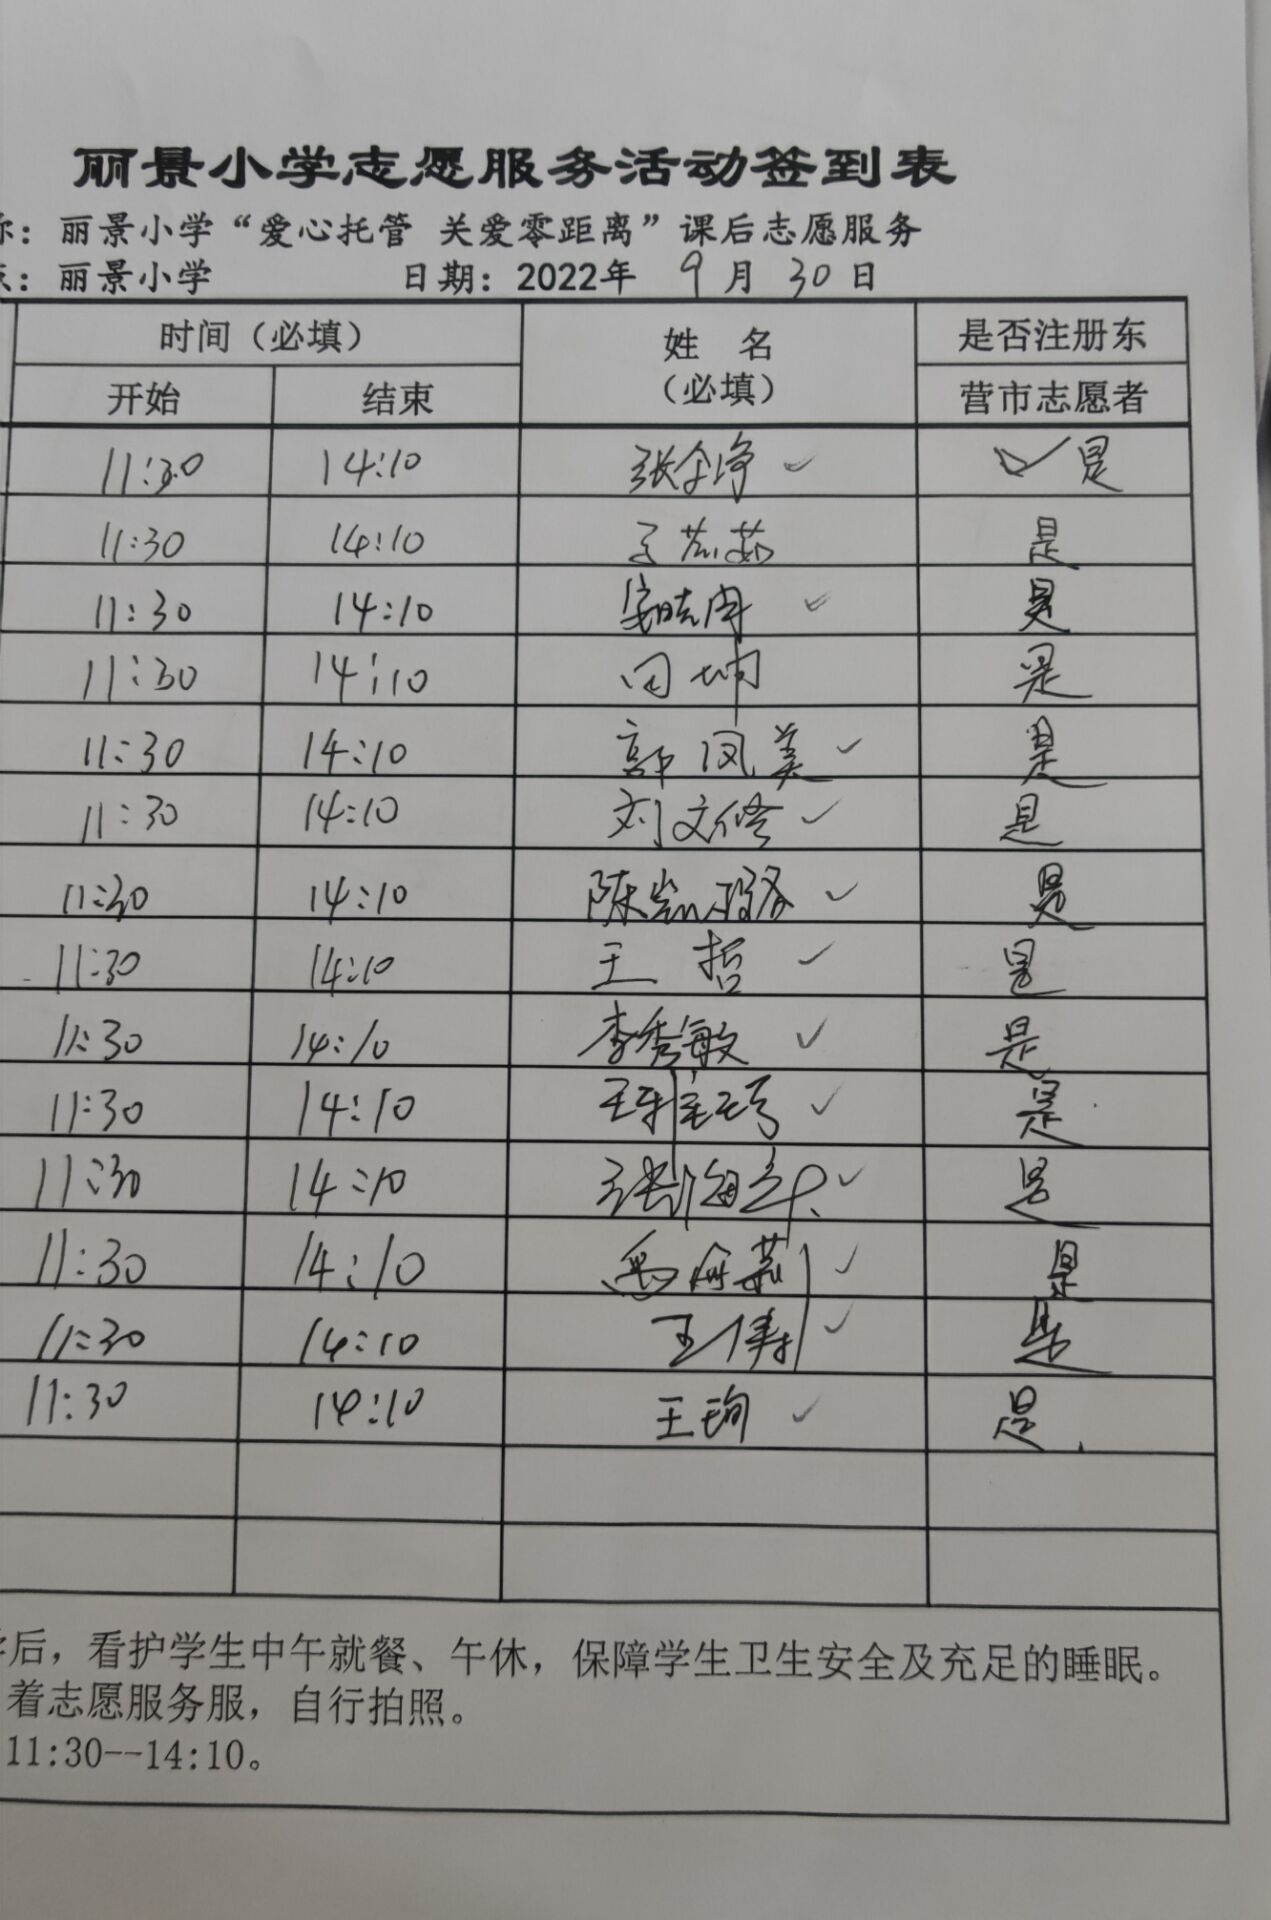 丽景小学志愿服务活动签到表
称：丽景小学“爱心托管 关爱零距离”课后志愿服务
丽景小学 日期：2022年 9月 30日
时间（必填） 姓 名（必填） 是否注册东营市志愿者
开始 结束
11:30 14:10 ✓ 是
11:30 14:10 是
11:30 14:10 ✓ 是
11:30 14:10 田坤 是
11:30 14:10 郭凤美 ✓ 是
11:30 14:10 刘文修 ✓ 是
11:30 14:10 ✓ 是
11:30 14:10 王哲 ✓ 是
11:30 14:10 李秀敏 ✓ 是
11:30 14:10 ✓ 是
11:30 14:10 ✓ 是
11:30 14:10 ✓ 是
11:30 14:10 王倩 ✓ 是
11:30 14:10 王珣 ✓ 是
学后，看护学生中午就餐、午休，保障学生卫生安全及充足的睡眠。
着志愿服务服，自行拍照。
11:30--14:10。